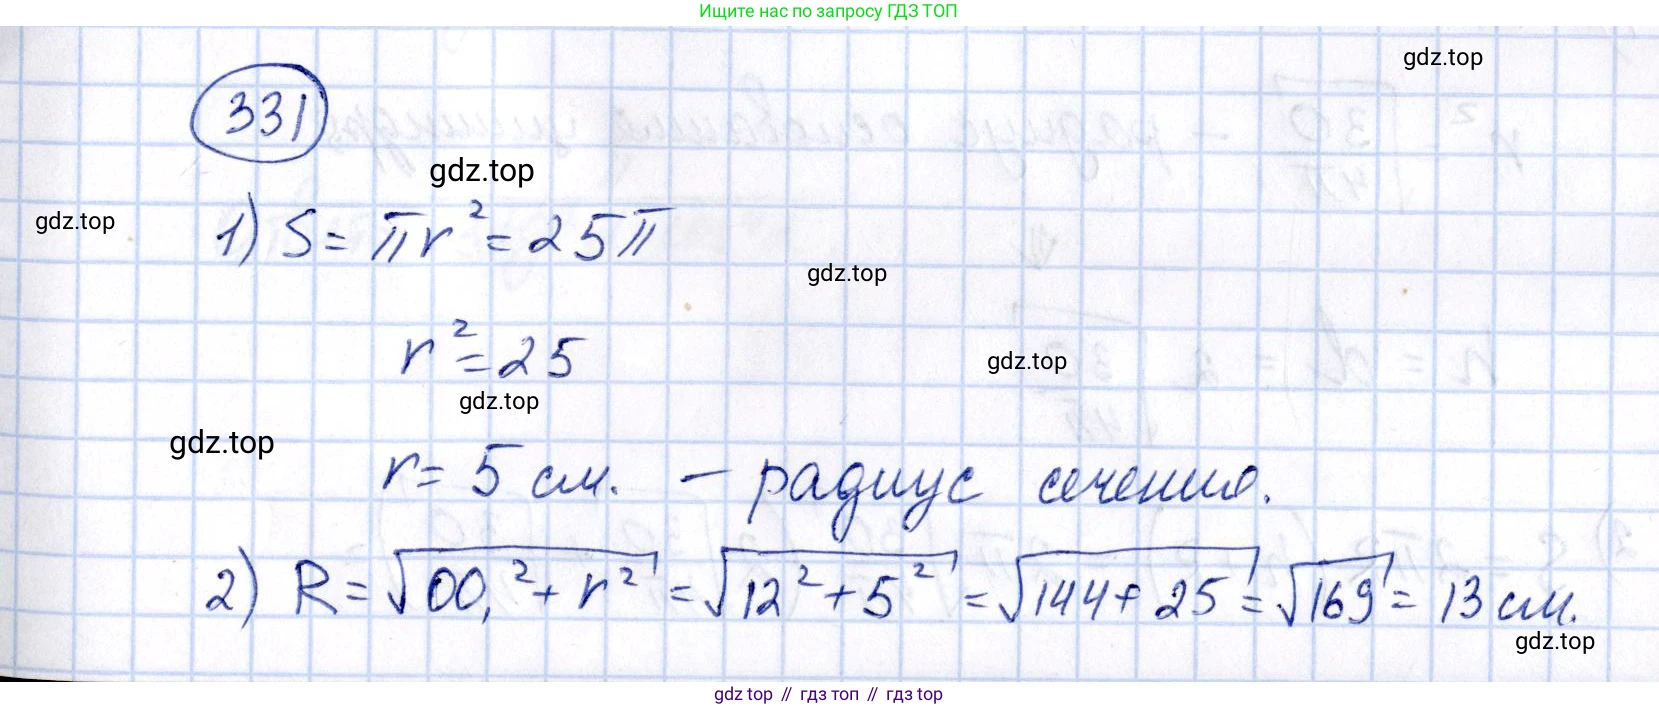 Ищите нас по запросу ГДЗ ТОП
gdz.top
331
gdz.top
gdz.top
1) S = πr² = 25π
gdz.top
r² = 25
gdz.top
gdz.top
gdz.top
r = 5 см. – радиус сечения.
2) R = √(OO₁² + r²) = √(12² + 5²) = √(144 + 25) = √169 = 13 см.
gdz.top
gdz top // гдз топ // gdz top